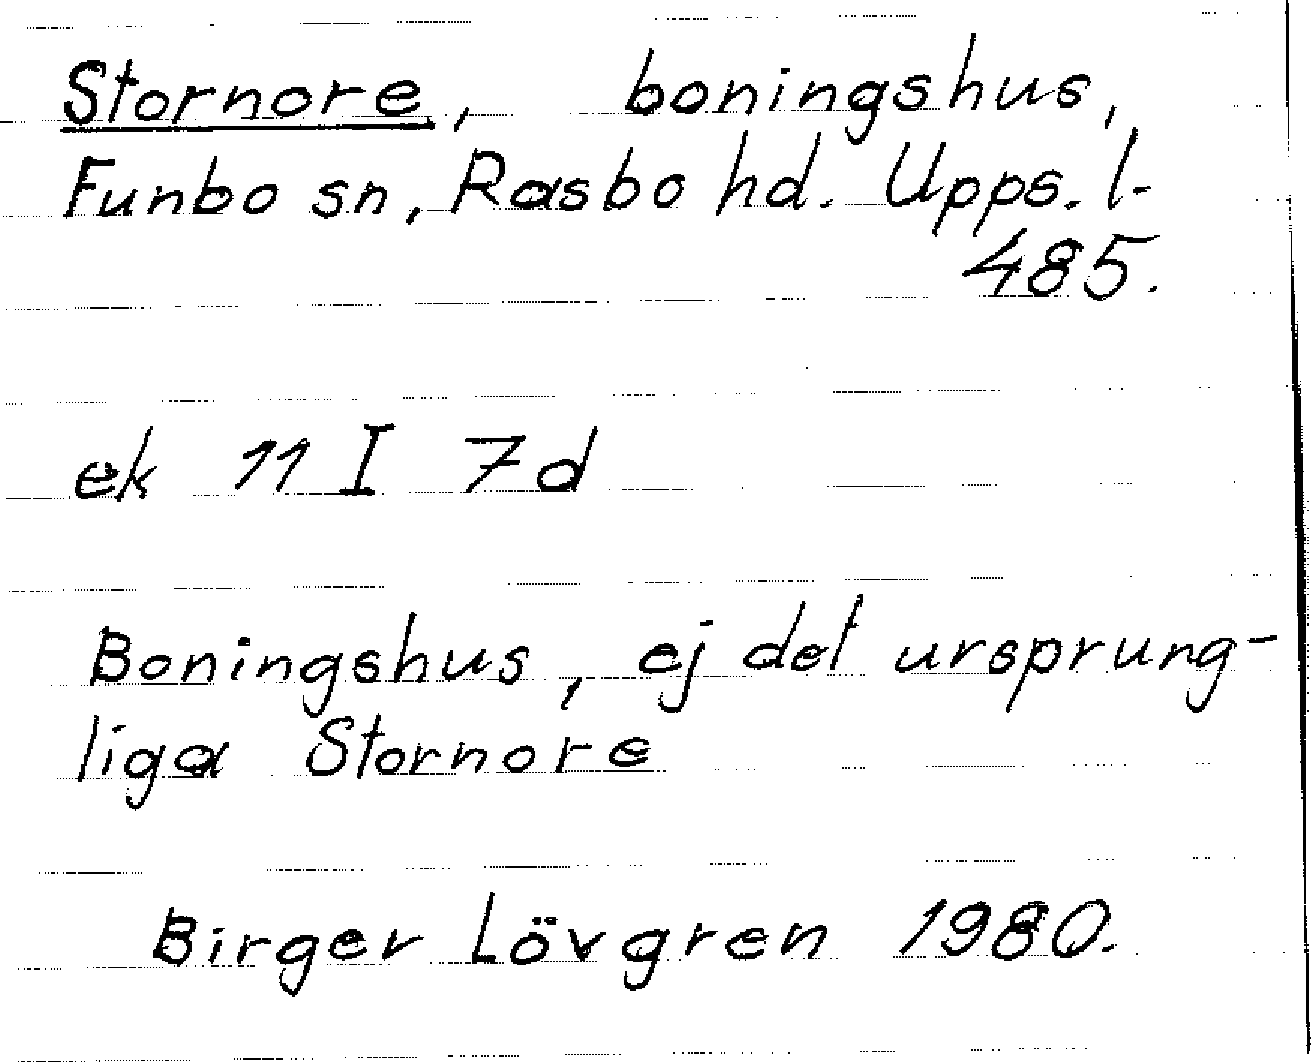 Stornore, boningshus,
Funbo sn, Rasbo hd. Upps. l-
485.
ek 11 I 7d
Boningshus, ej det ursprung-
liga Stornore
Birger Lövgren 1980.